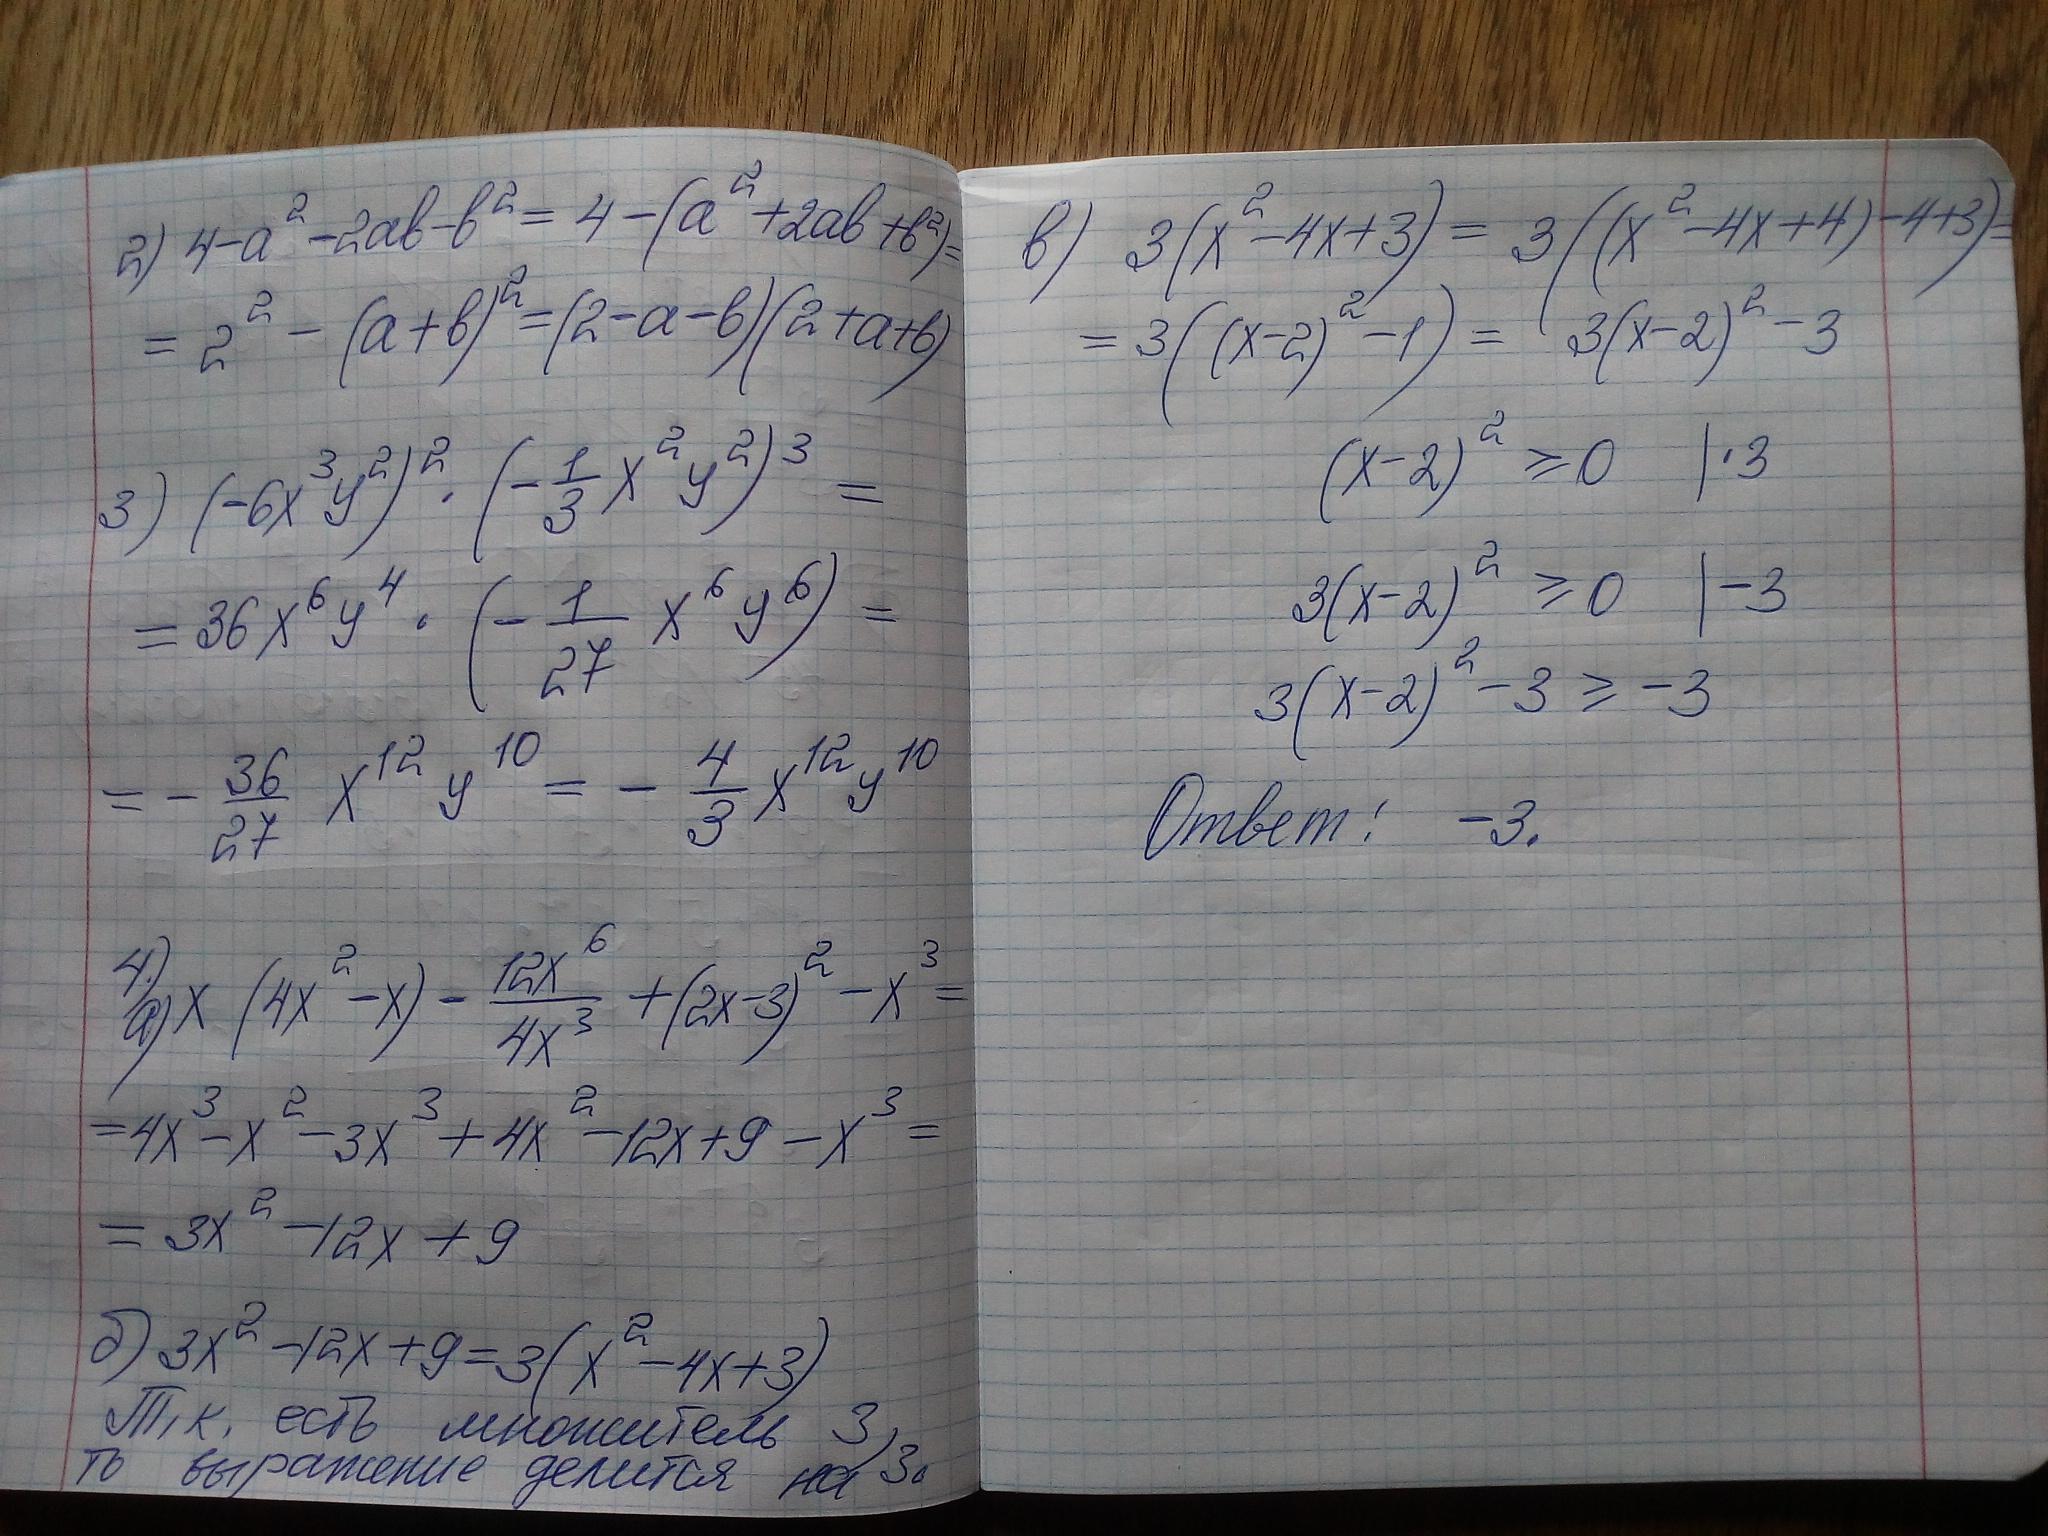 2) 4-a²-2ab-b² = 4-(a²+2ab+b²)=
= 2² - (a+b)² = (2-a-b)(2+a+b)
3) (-6x³y²)² · (-1/3 x²y²)³ =
= 36x⁶y⁴ · (-1/27 x⁶y⁶) =
= - 36/27 x¹²y¹⁰ = - 4/3 x¹²y¹⁰
4)
а) x (4x²-x) - 12x⁶/4x³ + (2x-3)² - x³ =
= 4x³-x²-3x³+4x²-12x+9-x³ =
= 3x²-12x+9
б) 3x²-12x+9=3(x²-4x+3)
Т.к. есть множитель 3,
то выражение делится на 3.
в) 3(x²-4x+3) = 3((x²-4x+4)-4+3)=
= 3((x-2)²-1) = 3(x-2)²-3
(x-2)² ⩾ 0 |·3
3(x-2)² ⩾ 0 |-3
3(x-2)²-3 ⩾ -3
Ответ: -3.